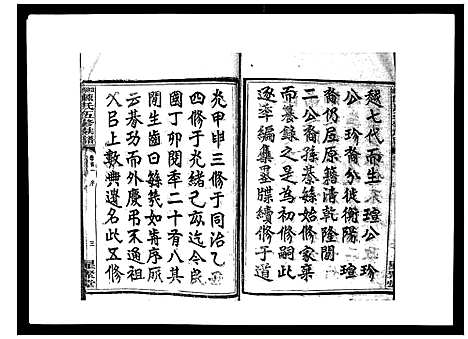 越七代而生瑄公珍
公珍裔分徙衡陽瑄
裔仍居原籍清乾隆間
二公裔孫蓁緜始修家乘
而纂錄之是為初修嗣此
逐年編集墨牒續修于道
光甲申三修于同治乙丑
四修于光緒己亥迄今民
國丁卯閱年二十有八其
間生齒日緐茲如嵵序厥
云芬功而外慶弔不通
父召上敦典遺名此五修
陳氏五修族譜
卷首一 序
三
星聚堂